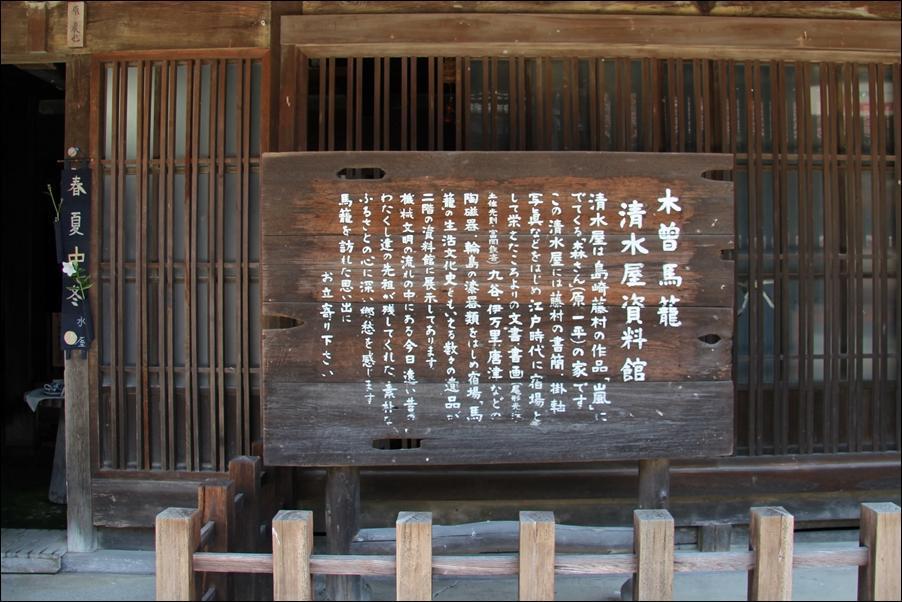 木曽馬籠
清水屋資料館
清水屋は島崎藤村の作品「嵐」に
でてくる"森さん"(原一平)の家です
この清水屋には藤村の書簡、掛軸
写真などをはじめ、江戸時代に宿場と
して栄えたころよりの文書、書画(尾形光
九谷、伊万里、唐津などの
陶磁器、輪島の漆器類をはじめ宿場、馬
籠の生活文化史ともいえる数々の遺品が
二階の資料館に展示してあります
機械文明の流れの中にある今日、遠い昔の
わたくし達の先祖が残してくれた、素朴な
ふるさとの心に深い郷愁を感じます
馬籠を訪れた思い出に
お立寄り下さい
春夏
冬
水屋